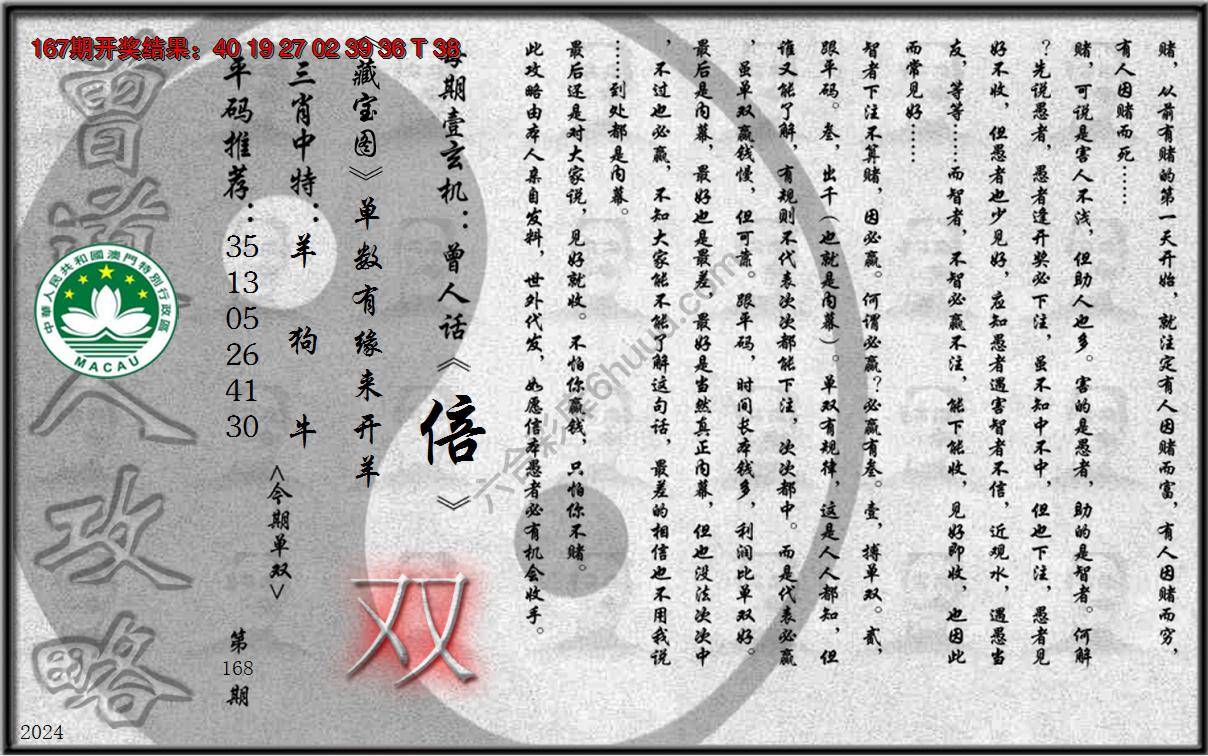 167期开奖结果：40 19 27 02 39 36 T 38
赌，从前有赌的第一天开始，就注定有人因赌而富，有人因赌而穷，
有人因赌而死……
赌，可说是害人不浅，但助人也多。害的是愚者，助的是智者。何解
？先说愚者，愚者逢开奖必下注，虽不知中不中，但也下注，愚者见
好不收，但愚者也少见好，应知愚者遇害智者不信，近观水，遇愚当
友，等等……而智者，不智必赢不注，能下能收，见好即收，也因此
而常见好……
智者下注不算赌，因必赢。何谓必赢？必赢有叁。壹，搏单双。贰，
跟平码。叁，出千（也就是内幕）。单双有规律，这是人人都知，但
谁又能了解，有规则不代表次次都能下注，次次都中。而是代表必赢
，虽单双赢钱慢，但可靠。跟平码，时间长本钱多，利润比单双好。
最后是内幕，最好也是最差，最好是当然真正内幕，但也没法次次中
，不过也必赢，不知大家能不能了解这句话，最差的相信也不用我说
……到处都是内幕。
最后还是对大家说，见好就收。不怕你赢钱，只怕你不赌。
此攻略由本人亲自发料，世外代发，如愿信本愚者必有机会收手。
每期壹玄机：曾人话《倍》
《藏宝图》单数有缘来开羊
双
三肖中特：羊 狗 牛
<今期单双>
平码推荐：35 13 05 26 41 30
第168期
曾道人攻略
中華人民共和國澳門特別行政區
MACAU
2024